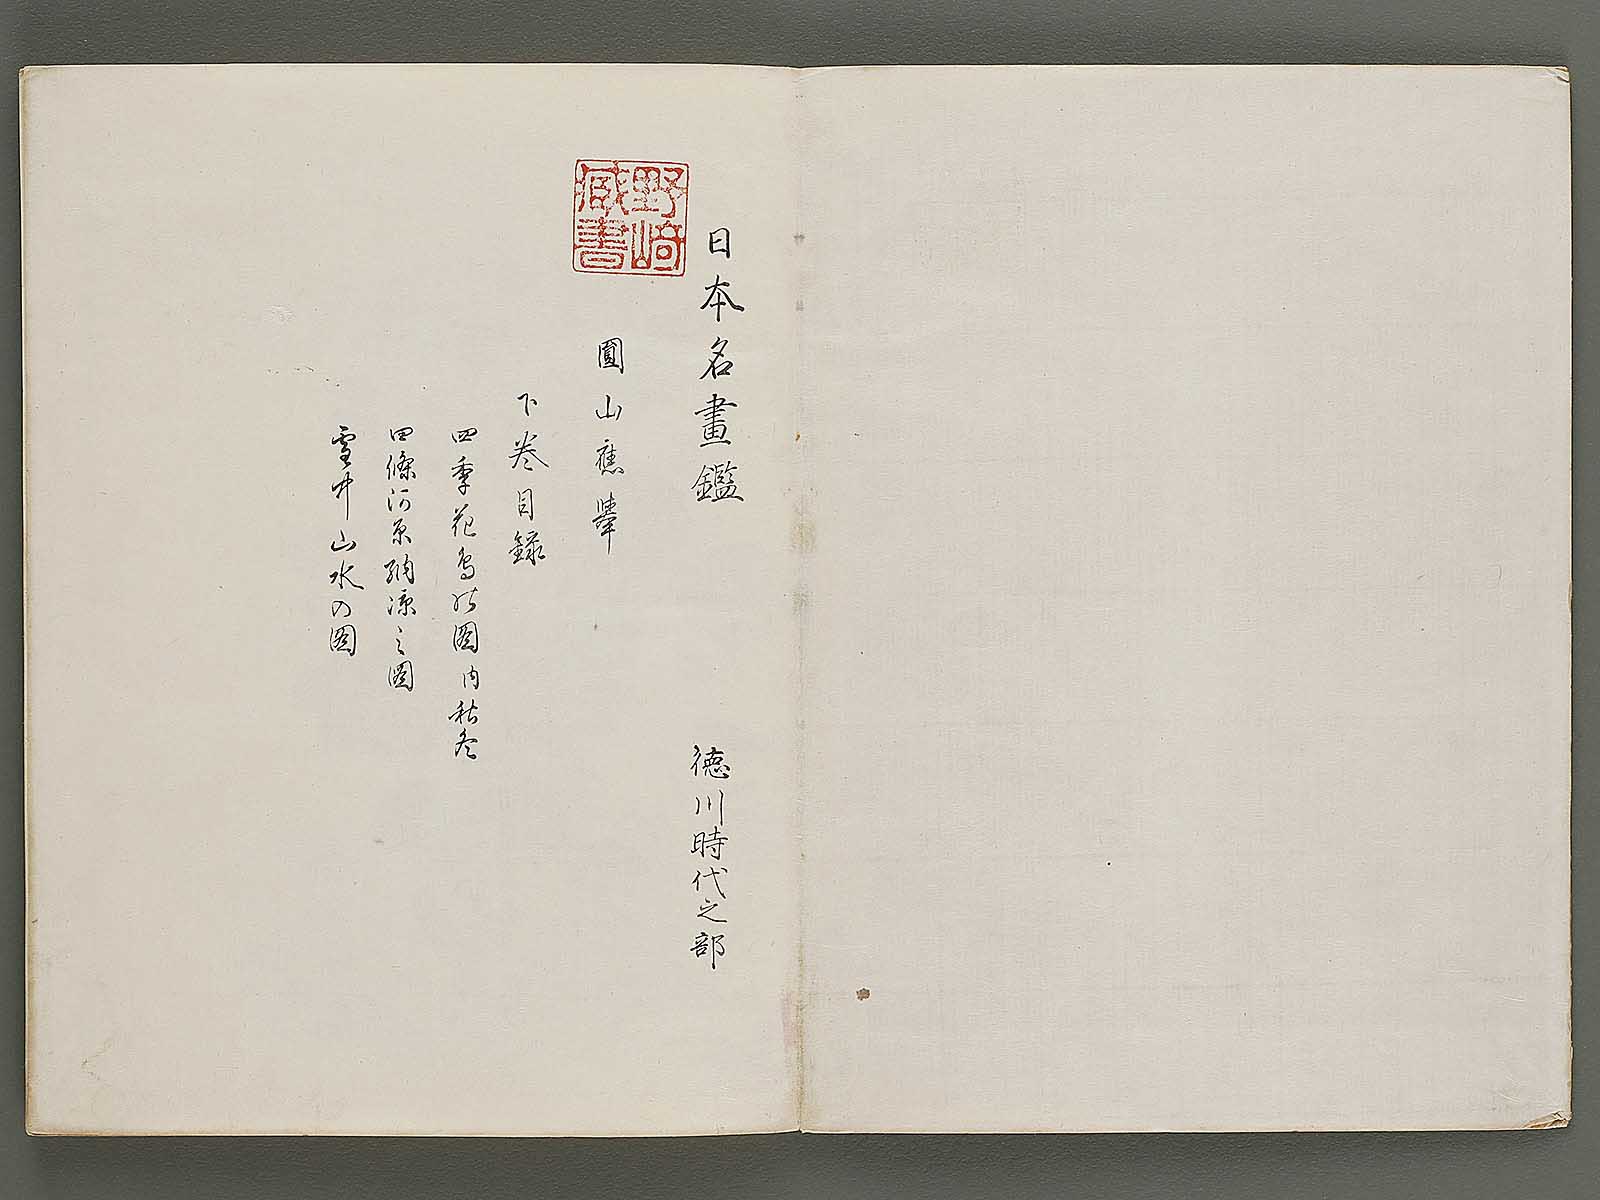 日本名畫鑑 徳川時代之部
野崎藏書
圓山應擧
下巻目録
四季花鳥の圖内秋冬
四條河原納凉之圖
雪中山水の圖